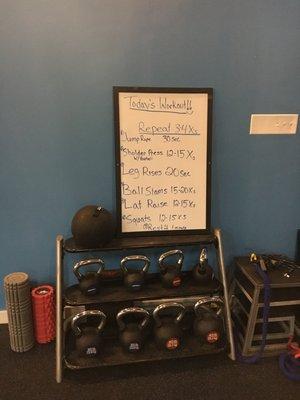 Today's Workout!!
Repeat 34Xs
Jump Rope 30sec
Sholder Press 12-15Xs
Leg Rises 20sec
Ball Slams 15-20Xs
Lat Raise 12-15Xs
Squats 12-15Xs